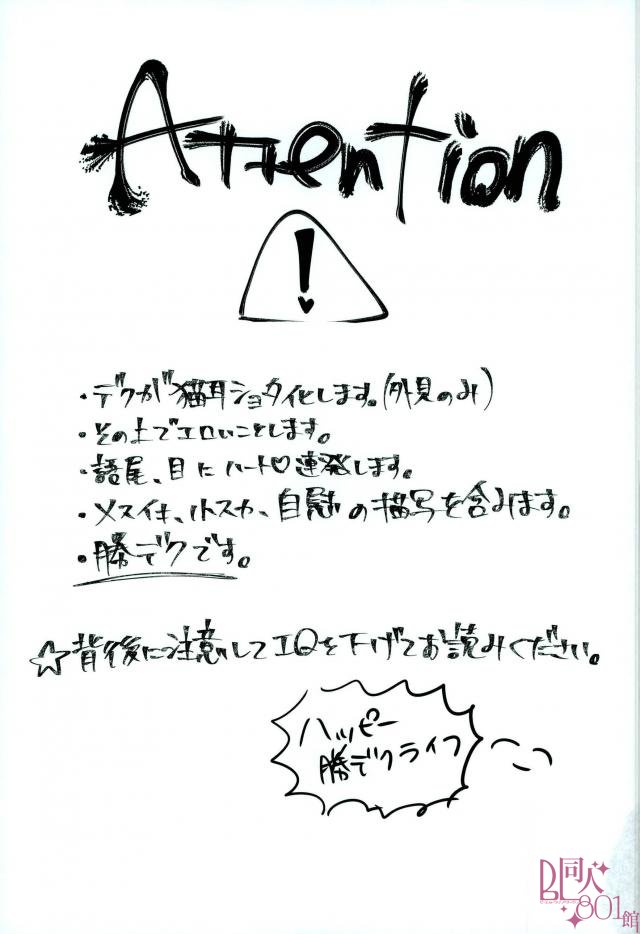 Attention
!
・デクが猫耳ショタ化します。(外見のみ)
・その上でエロいことします。
・語尾、目にハート♡連発します。
・メスイキ、小スカ、自慰の描写を含みます。
・勝デクです。
☆背後に注意してIQを下げてお読みください。
ハッピー
勝デクライフ
BL同人
801館